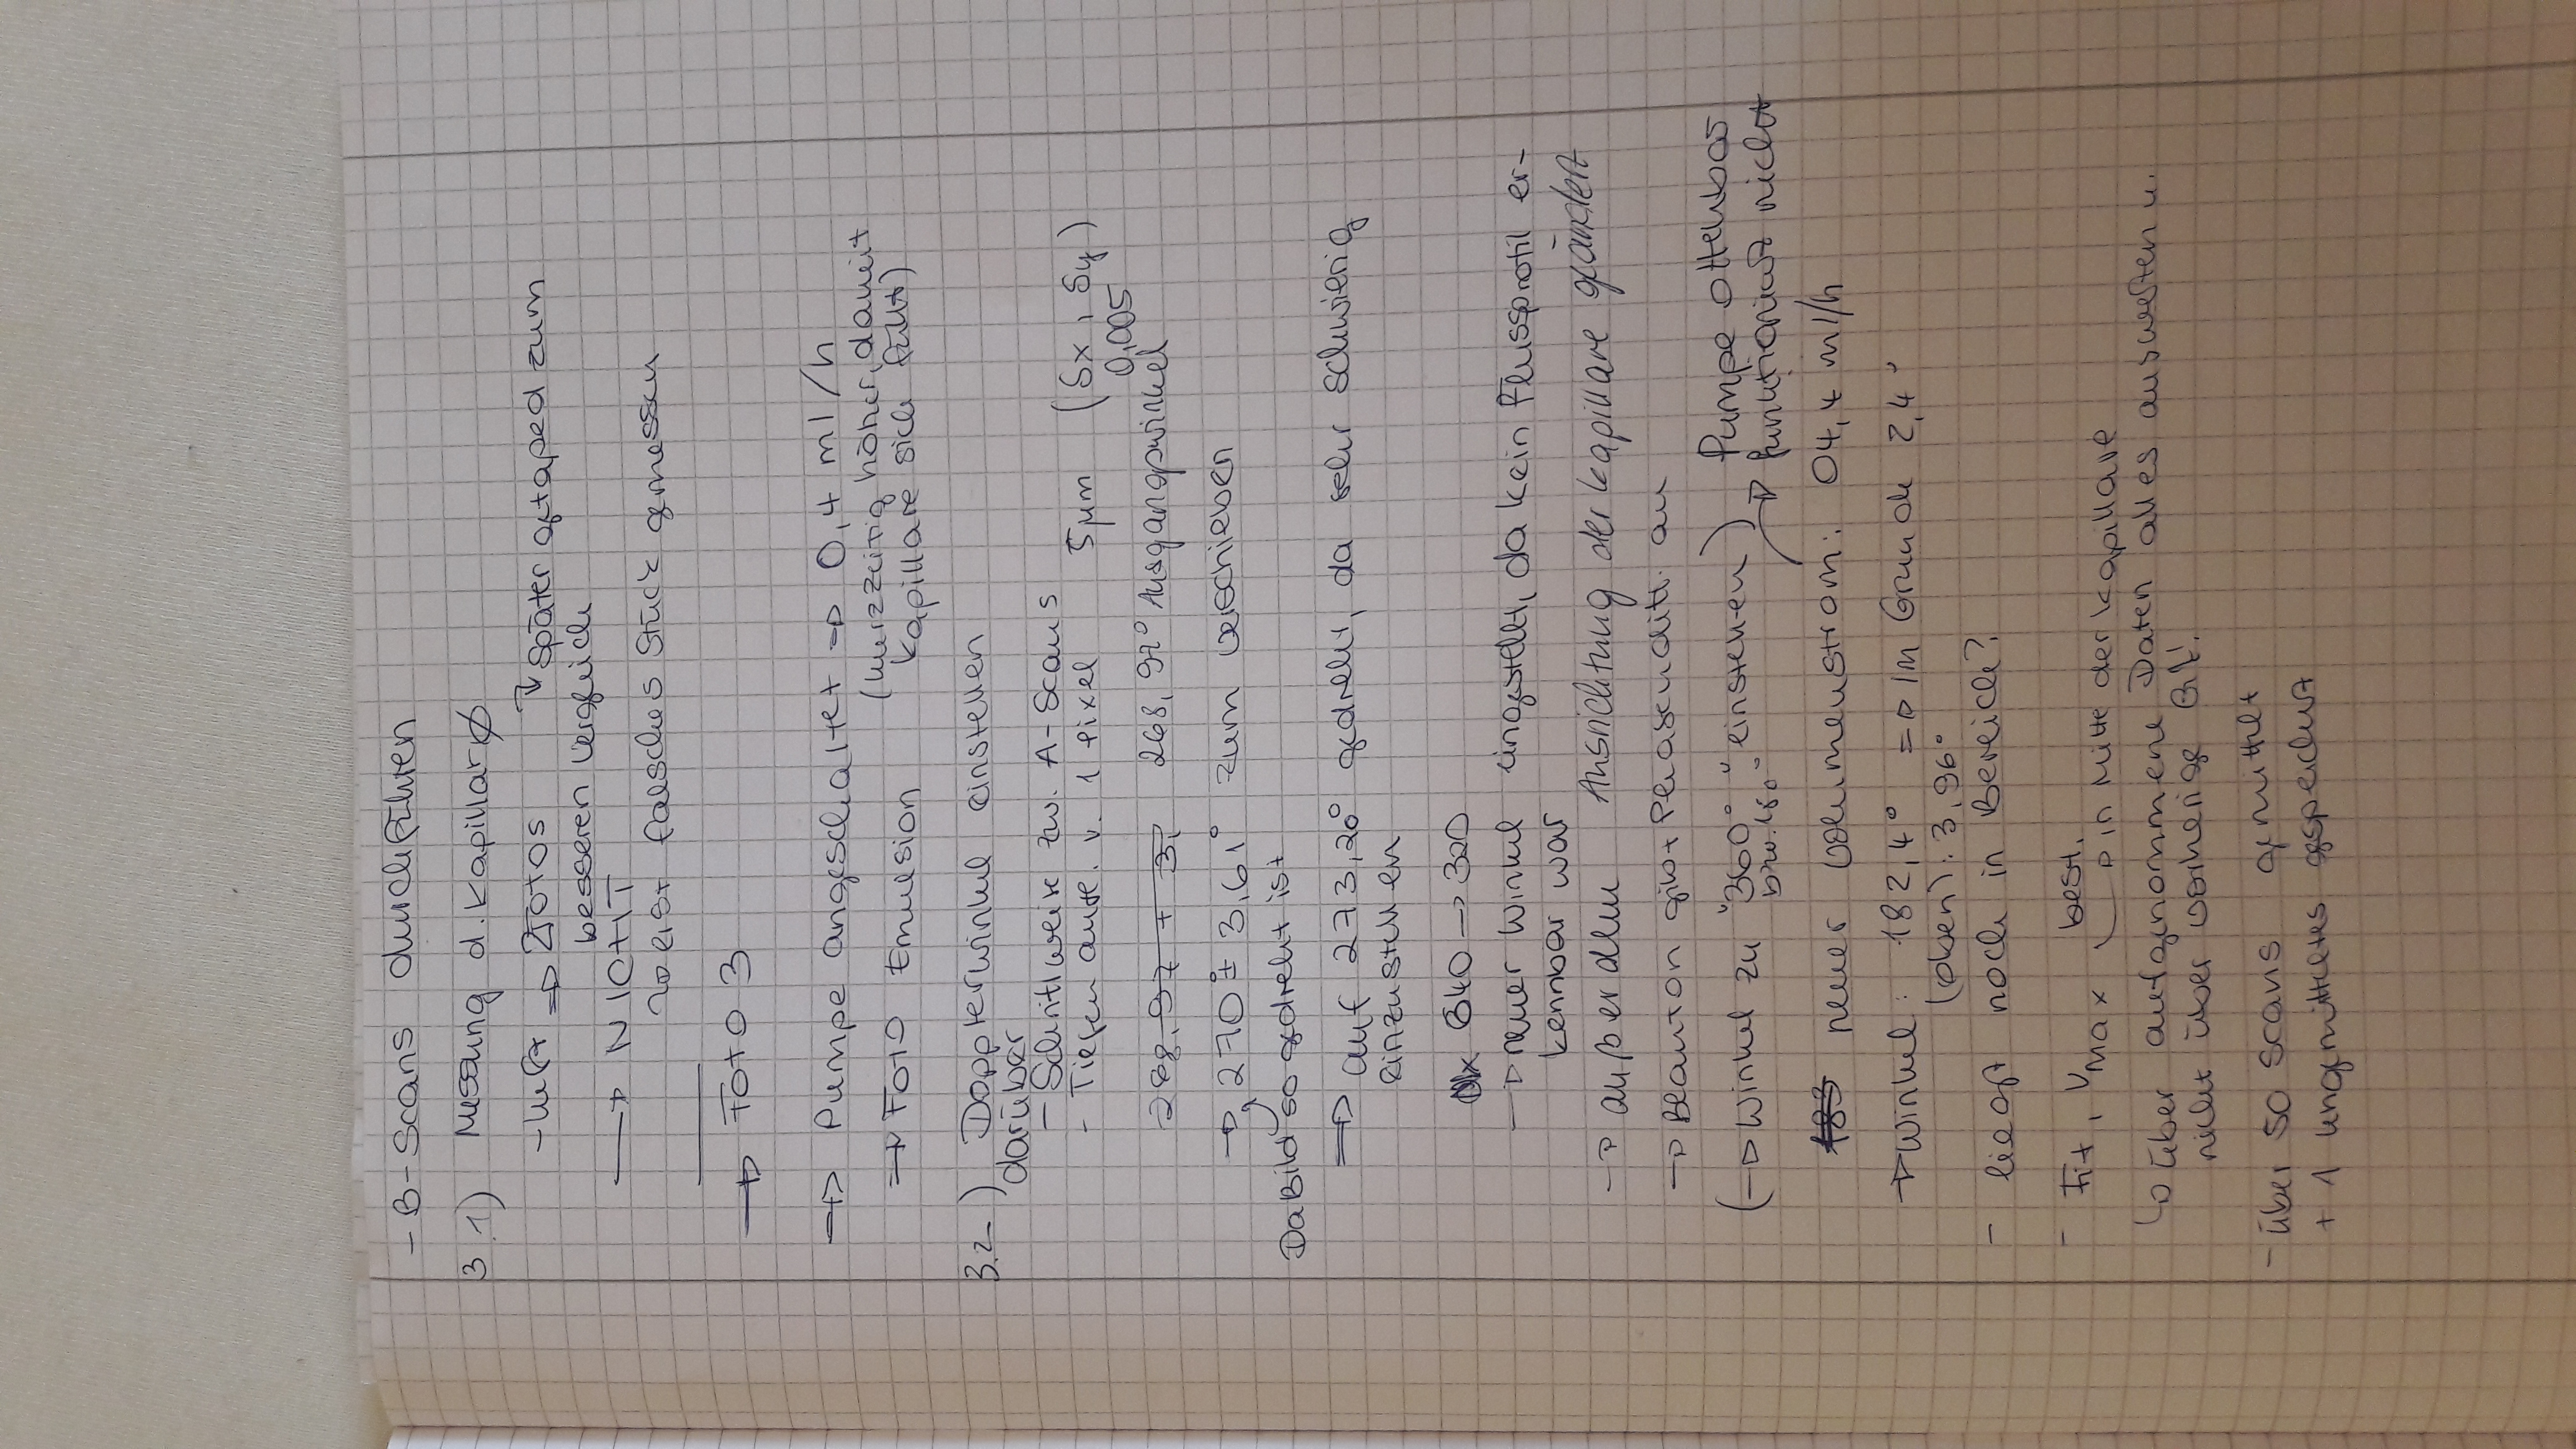 - B-Scans durchführen
3.1) Messung d. Kapillar Ø
- Luft => 2 Fotos ↳ später getaped zum
besseren Vergleich
→ NICHT
↳ erst falsches Stück gemessen
→ Foto 3
=> Pumpe angeschaltet => 0,4 ml/h
(kurzzeitig höher, damit
Kapillare sich füllt)
=> Foto Emulsion
3.2) Dopplerwinkel einstellen
darüber
- Schrittweite zw. A-Scans 5µm (Sx, Sy)
- Tiefen aufl. v. 1 Pixel 0,005
268,97 + 3, 268,97° Ausgangswinkel
→ 270° ± 3,61° zum verschieben
Da Bild so gedreht ist
=> auf 273,20° gedreht, da sehr schwierig
einzustellen
840 → 320
→ neuer Winkel eingestellt, da kein Flussprofil er-
kennbar war
→ außerdem Ausrichtung der Kapillare geändert
→ Beamton gibt Phasendiff. an
(→ Winkel zu "360°" einstellen) Pumpe offenbar
bzw. 180° → funktioniert nicht
neuer Volumenstrom: 04,4 ml/h
→ Winkel: 182,4° => Im Grunde 2,4°
(oben): 3,96°
- liegt noch in Bereich?
- Fit, vmax best.
→ in Mitte der Kapillare
↳ über aufgenommene Daten alles auswerten u.
nicht über vorherige Bil!
- über 50 scans gemittelt
+ 1 ungemitteltes gespeichert